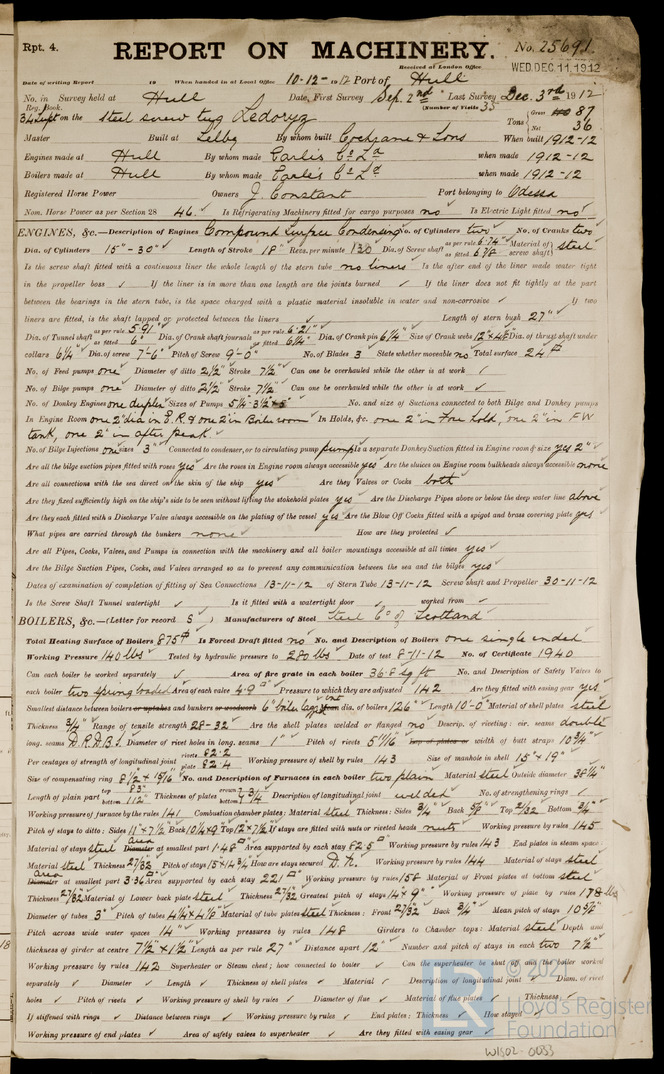 Rpt. 4. REPORT ON MACHINERY. No. 25691.
Received at London Office WED. DEC. 11, 1912
Date of writing Report 19 When handed in at Local Office 10-12-1912 Port of Hull
No. in Survey held at Hull Date, First Survey Sep. 2nd Last Survey Dec. 3rd 1912
Reg. Book. (Number of Visits 33
on the steel screw tug Ledoryg Tons Gross 87 Net 36
Master Built at Selby By whom built Cochrane & Sons When built 1912-12
Engines made at Hull By whom made Earle's Co Ld when made 1912-12
Boilers made at Hull By whom made Earle's Co Ld when made 1912-12
Registered Horse Power Owners J. Constant Port belonging to Odessa
Nom. Horse Power as per Section 28 46. Is Refrigerating Machinery fitted for cargo purposes no Is Electric Light fitted no
ENGINES, &c.—Description of Engines Compound Surface Condensing No. of Cylinders two No. of Cranks two
Dia. of Cylinders 15"-30" Length of Stroke 18" Revs. per minute 130 Dia. of Screw shaft as per rule 6.74" as fitted 6 7/8 Material of screw shaft steel
Is the screw shaft fitted with a continuous liner the whole length of the stern tube no liners Is the after end of the liner made water tight
in the propeller boss ✓ If the liner is in more than one length are the joints burned ✓ If the liner does not fit tightly at the part
between the bearings in the stern tube, is the space charged with a plastic material insoluble in water and non-corrosive ✓ If two
liners are fitted, is the shaft lapped or protected between the liners ✓ Length of stern bush 27"
Dia. of Tunnel shaft as per rule 5.91" as fitted 6" Dia. of Crank shaft journals as per rule 6.21" as fitted 6 1/4" Dia. of Crank pin 6 1/4" Size of Crank webs 12" x 4 1/8" Dia. of thrust shaft under
collars 6 1/4" Dia. of screw 7'-6" Pitch of Screw 9'-0" No. of Blades 3 State whether moveable no Total surface 24 ft
No. of Feed pumps one Diameter of ditto 2 1/2" Stroke 7 1/2" Can one be overhauled while the other is at work ✓
No. of Bilge pumps one Diameter of ditto 2 1/2" Stroke 7 1/2" Can one be overhauled while the other is at work ✓
No. of Donkey Engines one duplex Sizes of Pumps 5 1/4"-3 1/2" x 5" No. and size of Suctions connected to both Bilge and Donkey pumps
In Engine Room one 2" dia in E.R & one 2" in Boiler room In Holds, &c. one 2" in Fore hold, one 2" in FW
tank, one 2" in after peak
No. of Bilge Injections one sizes 3" Connected to condenser, or to circulating pump pump Is a separate Donkey Suction fitted in Engine room & size yes 2"
Are all the bilge suction pipes fitted with roses yes Are the roses in Engine room always accessible yes Are the sluices on Engine room bulkheads always accessible none
Are all connections with the sea direct on the skin of the ship yes Are they Valves or Cocks both
Are they fixed sufficiently high on the ship's side to be seen without lifting the stokehold plates yes Are the Discharge Pipes above or below the deep water line above
Are they each fitted with a Discharge Valve always accessible on the plating of the vessel yes Are the Blow Off Cocks fitted with a spigot and brass covering plate yes
What pipes are carried through the bunkers none How are they protected ✓
Are all Pipes, Cocks, Valves, and Pumps in connection with the machinery and all boiler mountings accessible at all times yes
Are the Bilge Suction Pipes, Cocks, and Valves arranged so as to prevent any communication between the sea and the bilges yes
Dates of examination of completion of fitting of Sea Connections 13-11-12 of Stern Tube 13-11-12 Screw shaft and Propeller 30-11-12
Is the Screw Shaft Tunnel watertight ✓ Is it fitted with a watertight door ✓ worked from ✓
BOILERS, &c.—(Letter for record S ) Manufacturers of Steel Steel Co of Scotland
Total Heating Surface of Boilers 875 ft Is Forced Draft fitted no No. and Description of Boilers one single ended
Working Pressure 140 lbs Tested by hydraulic pressure to 280 lbs Date of test 8-11-12 No. of Certificate 1940
Can each boiler be worked separately ✓ Area of fire grate in each boiler 36.8 sq ft No. and Description of Safety Valves to
each boiler two spring loaded Area of each valve 4.9 □" Pressure to which they are adjusted 142 Are they fitted with easing gear yes
Smallest distance between boilers or uptakes and bunkers or woodwork 6" boiler dia. of boilers 126" Length 10'-0" Material of shell plates steel
Thickness 3/4" Range of tensile strength 28-32 Are the shell plates welded or flanged no Descrip. of riveting: cir. seams double
long. seams D.R.D.B.S. Diameter of rivet holes in long. seams 1" Pitch of rivets 5 11/16 Lap of plates or width of butt straps 10 3/4"
Per centages of strength of longitudinal joint rivets 82.2 plate 82.4 Working pressure of shell by rules 143 Size of manhole in shell 15" x 19"
Size of compensating ring 8 1/2 x 15/16 No. and Description of Furnaces in each boiler two plain Material steel Outside diameter 38 1/4"
Length of plain part top 83" bottom 112" Thickness of plates Description of longitudinal joint welded No. of strengthening rings ✓
Working pressure of furnace by the rules 141 Combustion chamber plates: Material steel Thickness: Sides 3/4" Back 5/8" Top 21/32 Bottom 3/4"
Pitch of stays to ditto: Sides 11" x 7 1/2 Back 10 1/4 x 9 Top 12 x 7 1/2 If stays are fitted with nuts or riveted heads nuts Working pressure by rules 145
Material of stays steel area Diameter at smallest part 1.48 □" Area supported by each stay 82.5 □" Working pressure by rules 143 End plates in steam space:
Material steel Thickness 27/32 Pitch of stays 15 x 14 3/4 How are stays secured D.N. Working pressure by rules 144 Material of stays steel
area Diameter at smallest part 3.36 □" Area supported by each stay 221 □" Working pressure by rules 158 Material of Front plates at bottom steel
Thickness 27/32 Material of Lower back plate steel Thickness 27/32 Greatest pitch of stays 14 x 9" Working pressure of plate by rules 178 lbs
Diameter of tubes 3" Pitch of tubes 4 1/4 x 4 1/8" Material of tube plates steel Thickness: Front 27/32 Back 3/4" Mean pitch of stays 10 5/8"
Pitch across wide water spaces 14" Working pressures by rules 148 Girders to Chamber tops: Material steel Depth and
thickness of girder at centre 7 1/2 x 1 1/2 Length as per rule 27" Distance apart 12" Number and pitch of stays in each two 7 1/2"
Working pressure by rules 142 Superheater or Steam chest; how connected to boiler ✓ Can the superheater be shut off and the boiler worked
separately ✓ Diameter ✓ Length ✓ Thickness of shell plates ✓ Material ✓ Description of longitudinal joint ✓ Diam. of rivet
holes ✓ Pitch of rivets ✓ Working pressure of shell by rules ✓ Diameter of flue ✓ Material of flue plates ✓ Thickness ✓
If stiffened with rings ✓ Distance between rings ✓ Working pressure by rules ✓ End plates: Thickness ✓ How stayed ✓
Working pressure of end plates ✓ Area of safety valves to superheater ✓ Are they fitted with easing gear ✓
© 2021
Lloyd's Register
Foundation
W1502-0033